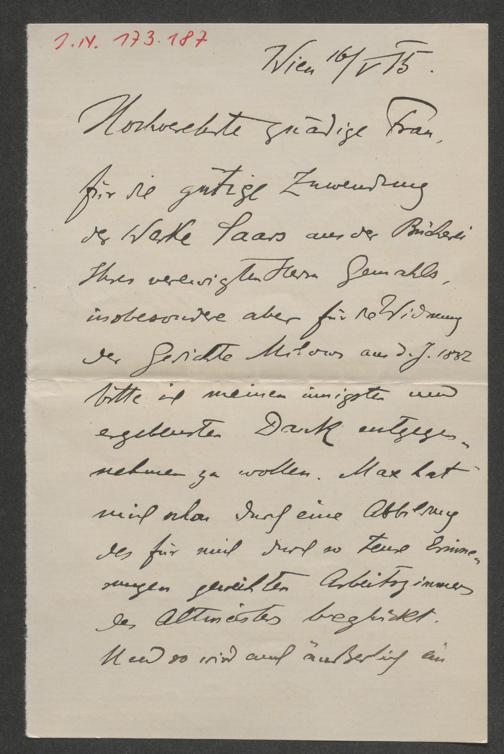 I.N. 173.187
Wien 16/V 15.
Hochverehrte gnädige Frau,
für die gütige Zuwendung
der Werke Saars aus der Bücherei
Ihres verewigten Herrn Gemahls,
insbesondere aber für die Widmung
der Gedichte Milows aus d. J. 1882
bitte ich meinen innigsten und
ergebensten Dank entgegen-
nehmen zu wollen. Max hat
mich schon durch eine Abbildung
des für mich durch so teure Erinne-
rungen geweihten Arbeitszimmers
des Altmeisters beglückt.
Und so wird auch äußerlich ein